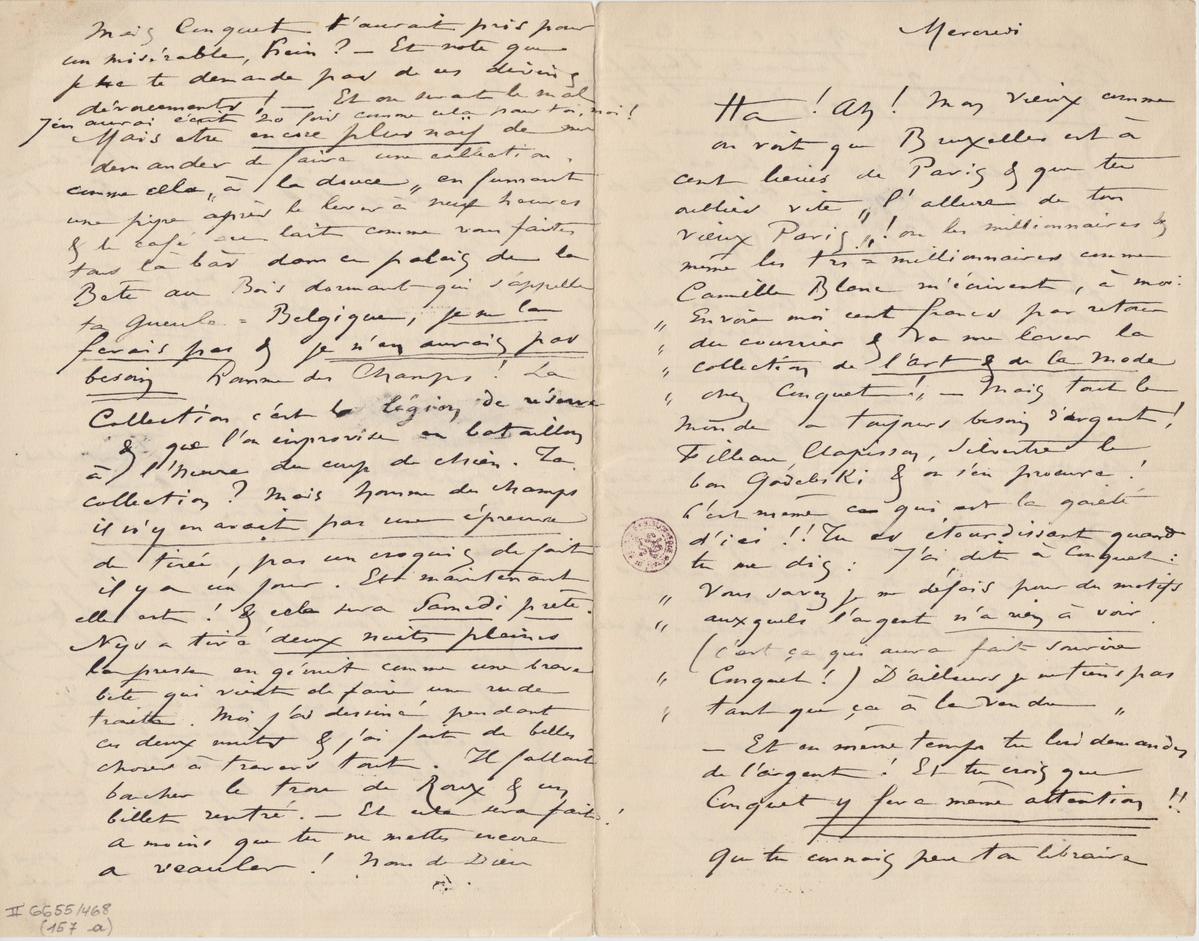 Mercredi
Ha ! Ah ! Mon vieux comme
on voit que Bruxelles est à
cent lieues de Paris & que tu
oublies vite „ l'allure de ton
vieux Paris „ ! où les millionnaires &
même les tris = millionnaires comme
Camille Blanc m'écrivent, à moi :
„ Envoie moi cent francs par retour
„ du courrier & va me laver la
„ collection de l'art & de la mode
„ chez Conquet ! „ — Mais tout le
monde a toujours besoin d'argent !
Filleau Clapisson, Silvestre le
bon Godebski & on s'en procure !
C'est même ce qui est la gaieté
d'ici !! Tu es étourdissant quand
tu me dis : J'ai dit à Conquet :
„ Vous savez je me défais pour des motifs
„ auxquels l'argent n'a rien à voir.
(c'est ça qui aura fait sourire
„ Conquet !) D'ailleurs je ne tiens pas
„ tant que ça à le vendre „
— Et en même temps tu lui demandes
de l'argent ! Et tu crois que
Conquet y fera même attention !!
que tu connais peu ton libraire
Mais Conquet t'aurait pris pour
un misérable, hein ? — Et note que
je ne te demande pas de ces divins
dévouements ! — Et on serait le mal
J'en aurai écrit 20 fois comme cela pour toi, moi !
Mais etre encore plus naïf de me
demander de faire une collection.
comme cela, „ à la douce „ en fumant
une pipe après le lever à neuf heures
& le café au lait comme vous faites
tous là bas dans ce palais de la
Bete au Bois dormant qui s'appelle
ta Gueule = Belgique, je ne la
ferais pas & je n'en aurais pas
besoin homme des Champs ! La
Collection c'est la légion de réserve
& que l'on improvise en bataillon
à l'heure du coup de chien. La
collection ? Mais homme des champs
il n'y en avait pas une épreuve
de tirée, pas un croquis de fait
il y a un jour. Et maintenant
elle est ! & cela sera Samedi prête.
Nys a tiré deux nuits pleines
la presse en gémit comme une brave
bete qui vient de faire une rude
traite. Moi j'ai dessiné pendant
ces deux nuits & j'ai fait de belles
choses à travers tout. Il fallait
boucher le trou de Roux & un
billet rentré. — Et cela sera fait !
a moins que tu ne mettes encore
a veauler ! Nom de Dieu
II 6655/468
(157 a)